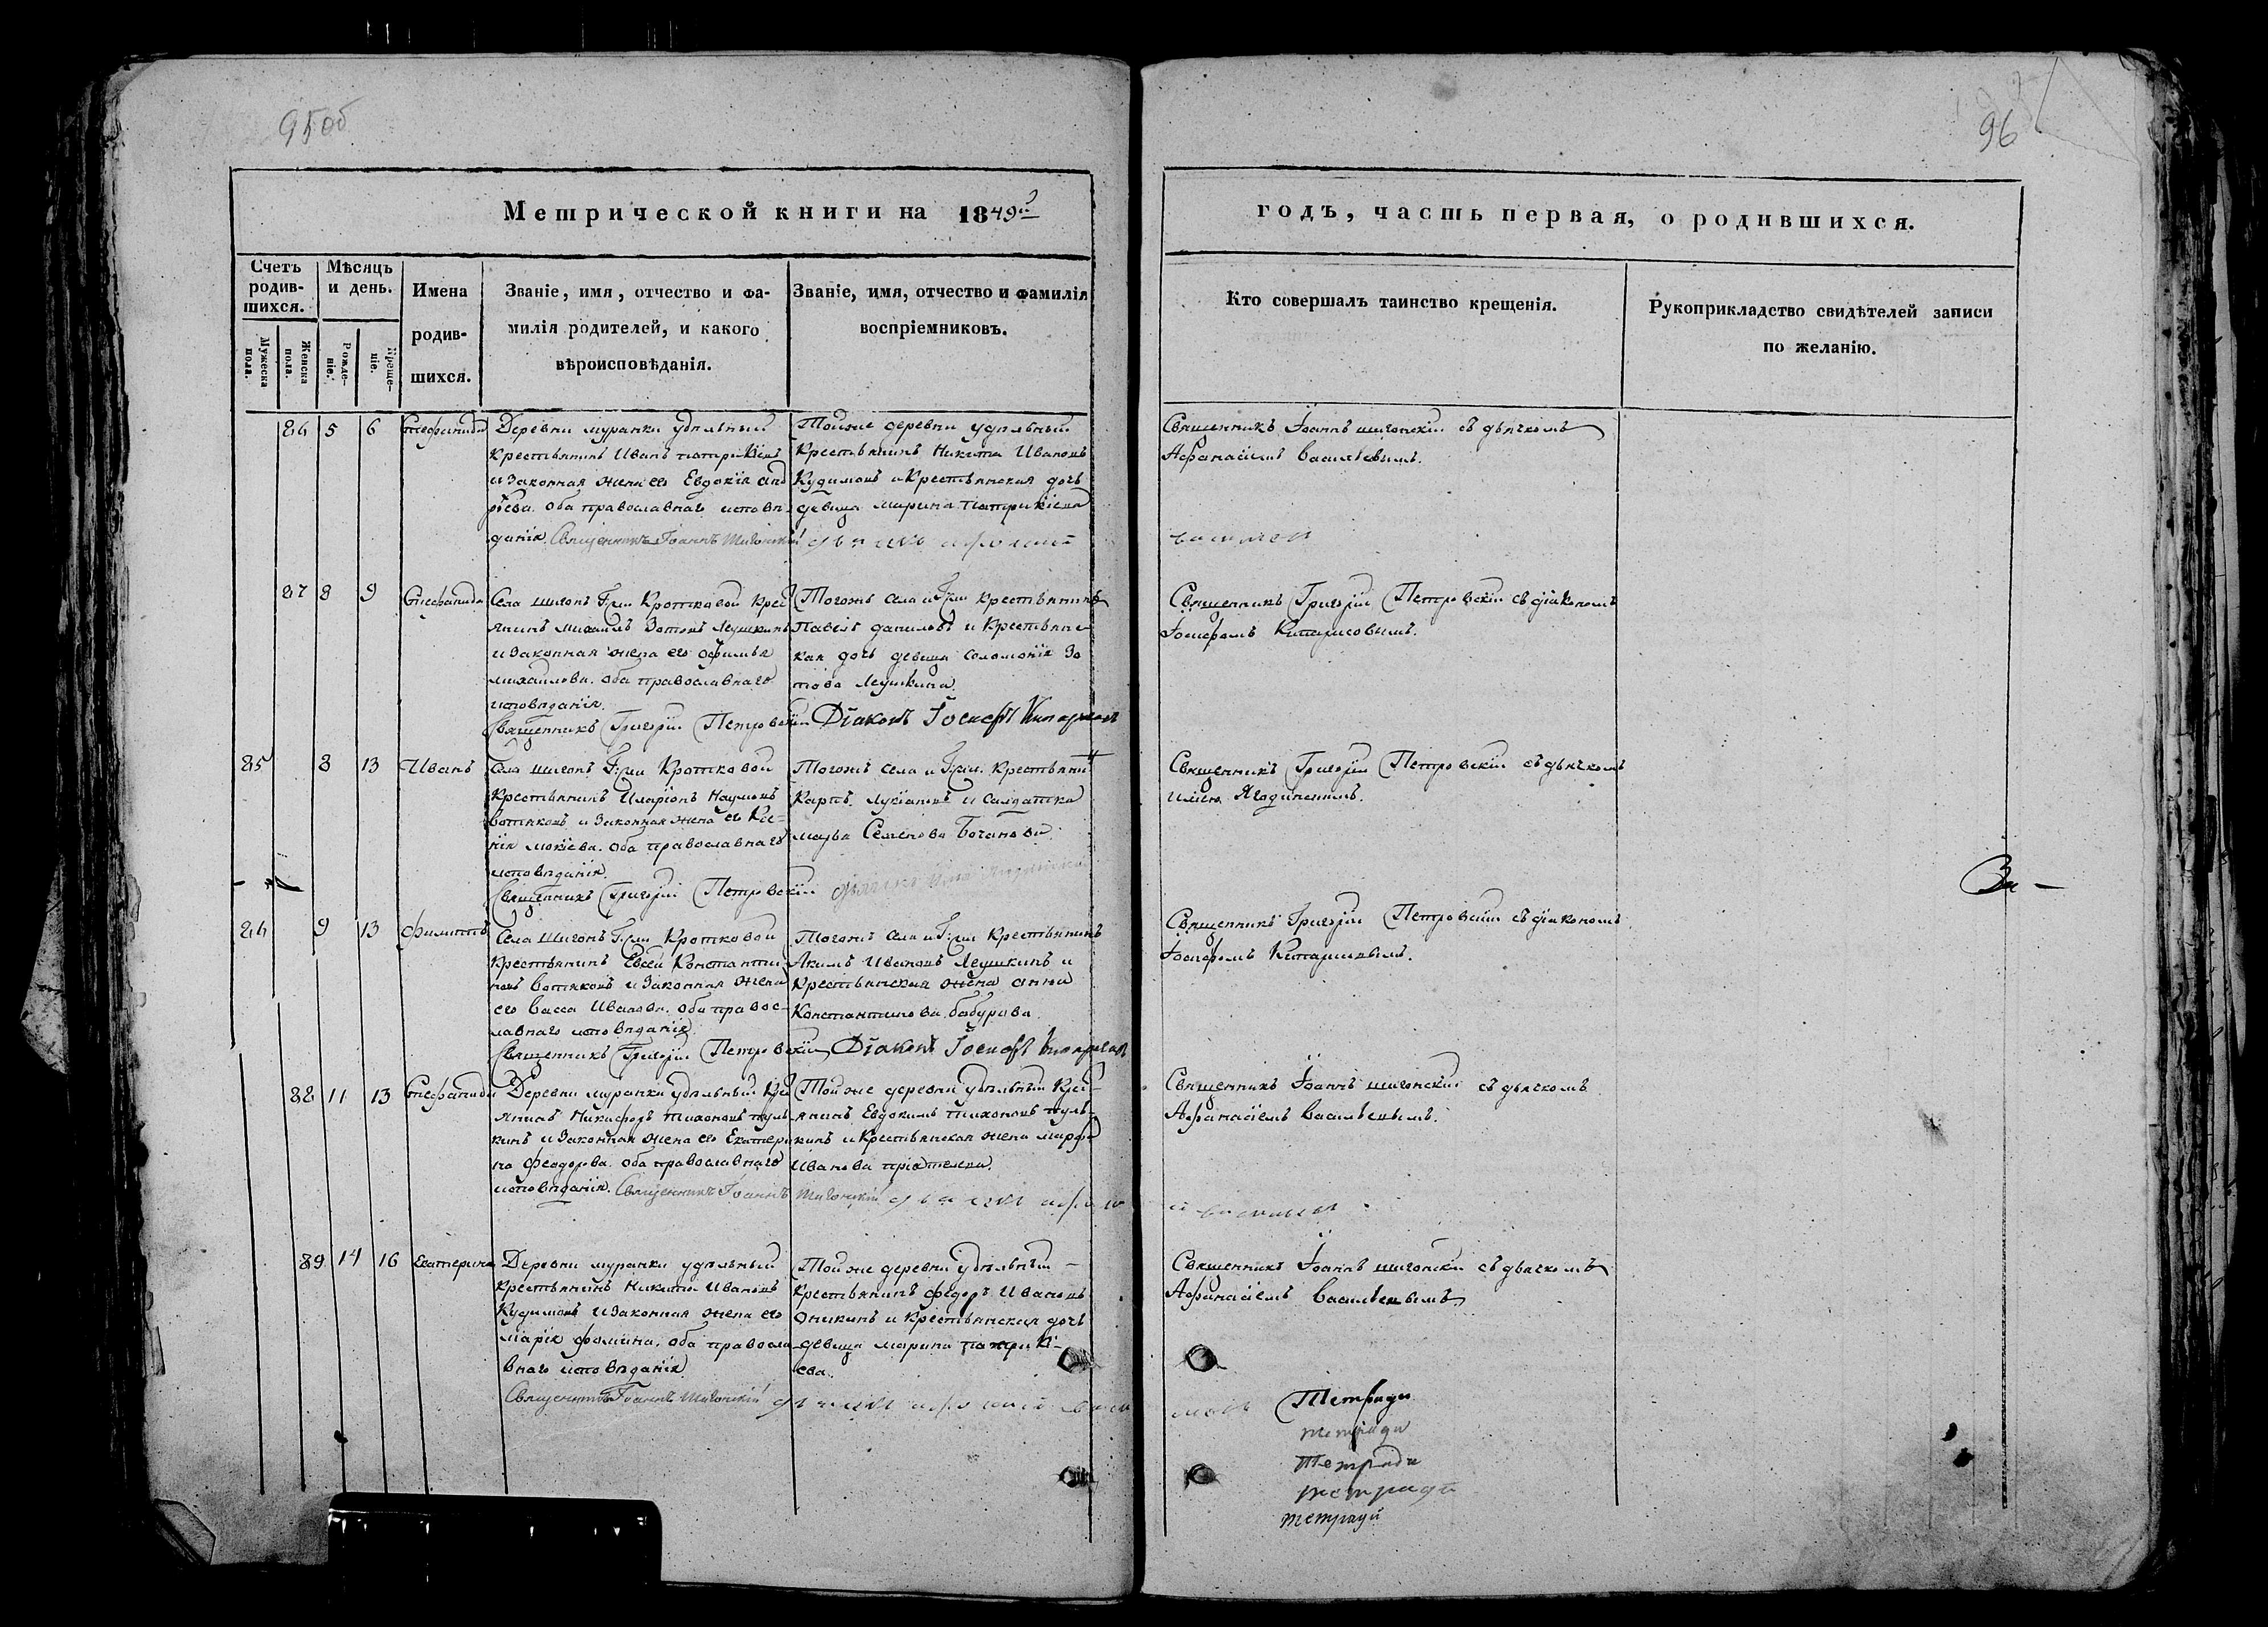 95об
96
Метрической книги на 1849й
годъ, часть первая, о родившихся.
Счетъ родив-шихся.
Мѣсяцъ и день.
Имена родив-шихся.
Званіе, имя, отчество и фа-
милія родителей, и какого
вѣроисповѣданія.
Званіе, имя, отчество и фамилія
воспріемниковъ.
Кто совершалъ таинство крещенія.
Рукоприкладство свидѣтелей записи
по желанію.
Мужеска пола.
Женска пола.
Рожде-ніе.
Креще-ніе.
5 6 Стефанида
Деревни муранки удѣльный
крестьянинъ Иванъ
и законная жена его Евдокія Анд
рѣева. оба православнаго исповѣ-
данія. Священникъ Іоаннъ Шигонскій
Тойже деревни удѣльный
крестьянинъ Никита Ивановъ
Кудимовъ и крестьянская дочь
девица марина патрикіева
Священникъ Іоаннъ шигонскій съ дьячкомъ
Афанасіемъ васильевымъ.
87 8 9 Стефанида
Села шигонъ Г:жи Кротковой крес
янинъ михаилъ Зотовъ Леушкинъ
и законная жена его офимья
михайлова. оба православнаго
исповѣданія.
Священникъ Григорій Петровскій Діаконъ Іосифъ Кипарисовъ
Тогожъ села и Г:жи крестьянинъ
Павелъ даниловъ и крестьянс
кая дочь девица Соломонія Зо
това Леушкина.
Священникъ Григорій Петровскій съ діакономъ
Іосифомъ Кипарисовымъ.
85 8 13 Иванъ
Села шигонъ Г:жи Кротковой
крестьянинъ Иларіонъ Наумовъ
вотяковъ и законная жена его Ксе-
нія мокіева. оба православнаго
исповѣданія.
Священникъ Григорій Петровскій
Тогожъ села и Г:жи. крестьяни
Карпъ Лукіановъ и солдатка
марья Семенова
Священникъ Григорій Петровскій съ дьячкомъ
Ильею Ягодинскимъ.
За -
9 13 Филиппъ
Села шигонъ Г:жи Кротковой
крестьянинъ Евсей Константи
новъ вотяковъ и законная жена
его васса Иванова. оба правос-
лавнаго исповѣданія.
Священникъ Григорій Петровскій Діаконъ Іосифъ Кипарисовъ
Тогожъ села и Г:жи крестьянинъ
Акимъ Ивановъ Леушкинъ и
крестьянская жена анна
Константинова бабурова.
Священникъ Григорій Петровскій съ діакономъ
Іосифомъ Кипарисовымъ.
88 11 13 Стефанида
Деревни муранки удѣльный крес
янинъ Никифоръ тихоновъ туль
кинъ и законная жена его Екатери
на Феодорова. оба православнаго
исповѣданія. Священникъ Іоаннъ Шигонскій
Той же деревни удѣльный крес-
янинъ Евдокимъ тихоновъ туль-
кинъ и крестьянская жена марфа
Иванова
Священникъ Іоаннъ шигонскій съ дьячкомъ
Афанасіемъ васильевымъ.
89 14 16 Екатерина
Деревни муранки удѣльный
крестьянинъ Никита Ивановъ
Кудимовъ и законная жена его
марія фомина. оба правосла-
внаго исповѣданія
Священникъ Іоаннъ Шигонскій
Той же деревни удѣльный -
крестьянинъ федоръ Ивановъ
Оникинъ и крестьянская дочь
девица марина патрикі-
ева.
Священникъ Іоаннъ шигонскій съ дьячкомъ
Афанасіемъ васильевымъ.
Тетради
тетради
Тетради
тетради
тетради